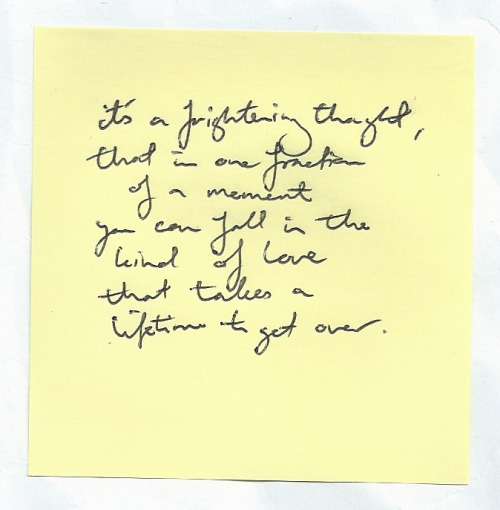 it's a frightening thought,
that in one fraction
of a moment
you can fall in the
kind of love
that takes a
lifetime to get over.